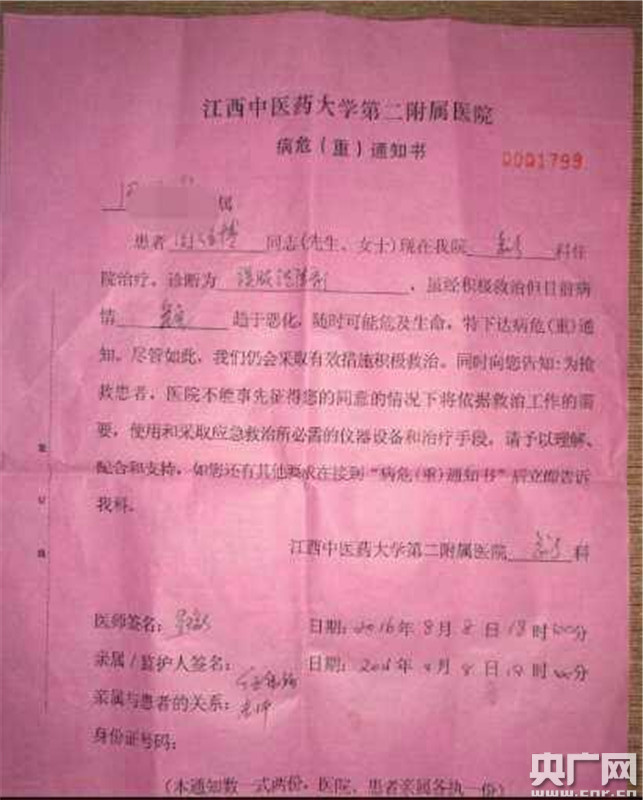 江西中医药大学第二附属医院
病危（重）通知书
0001799
属
患者 博 同志(先生、女士)现在我院 急诊 科住
院治疗。诊断为 误服 ，虽经积极救治但目前病
情 趋于恶化，随时可能危及生命，特下达病危(重)通
知。尽管如此，我们仍会采取有效措施积极救治。同时向您告知:为抢
救患者，医院不能事先征得您的同意的情况下将依据救治工作的需
要，使用和采取应急救治所必需的仪器设备和治疗手段，请予以理解、
配合和支持，如您还有其他要求在接到“病危(重)通知书”后立即告诉
我科。
江西中医药大学第二附属医院 急诊 科
医师签名： 日期：2016年8月8日18时00分
亲属/监护人签名： 日期：2016年8月8日18时00分
亲属与患者的关系：
身份证号码：
(本通知数一式两份，医院、患者亲属各执一份)
央广网
www.cnr.cn